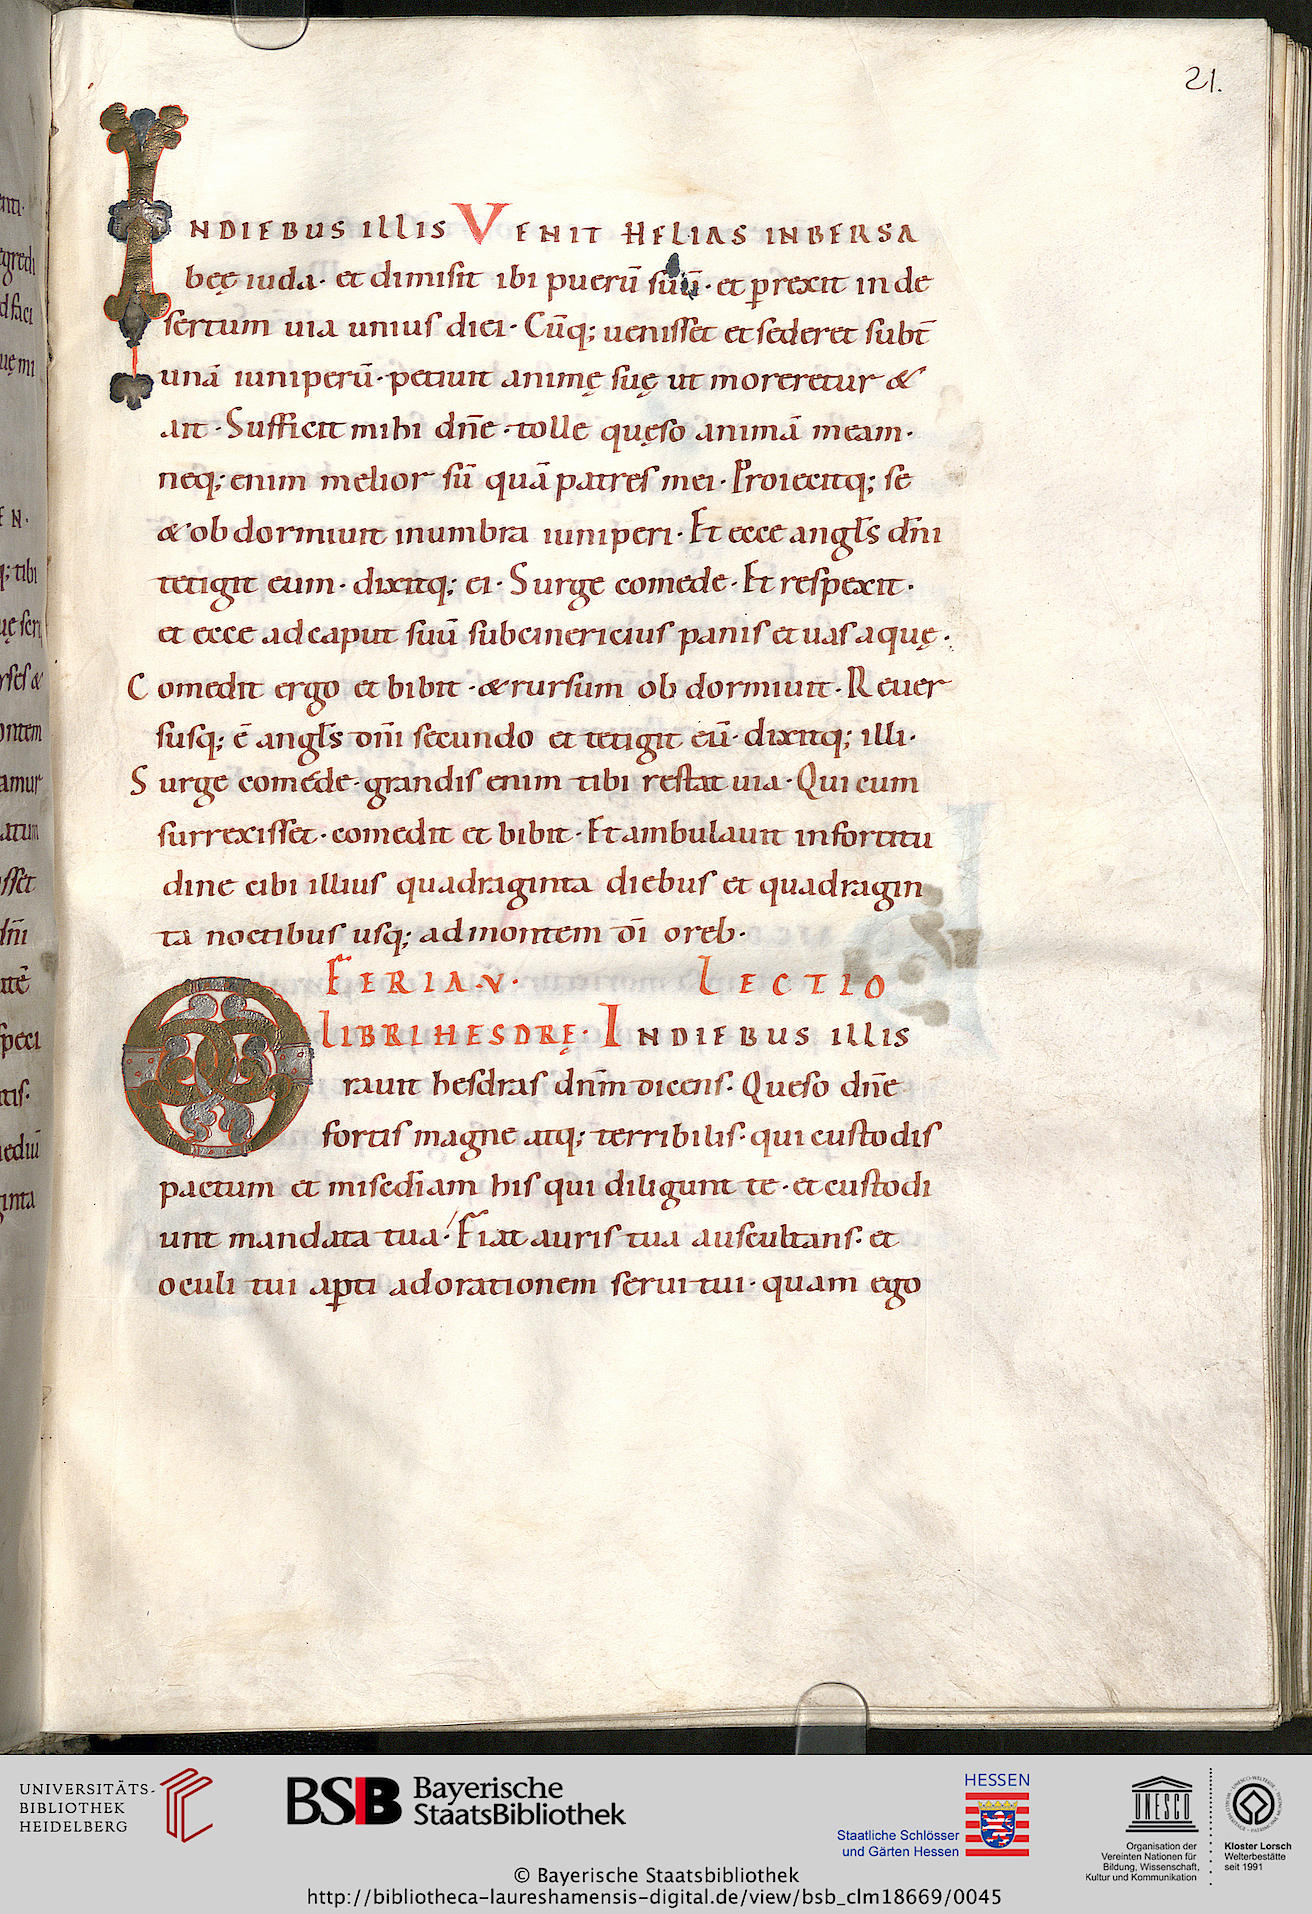 21.
INDIEBUS ILLIS VENIT HELIAS INBERSA
beę iuda· et dimisit ibi puerū suū· et ꝑrexit in de
sertum uia unius diei· Cūq; uenisset et sederet subt̄
unā iuniperū· petiuit animę suę ut moreretur &
ait· Sufficit mihi dn̄e· tolle quęso animā meam·
neq; enim melior sū quā patres mei· Proiecitq; se
& ob dormiuit inumbra iuniperi· Et ecce angl̄s dn̄i
tetigit eum· dixitq; ei· Surge comede· Et respexit·
et ecce ad caput suū subcinericius panis et uas aquę·
Comedit ergo et bibit· & rursum ob dormiuit· Reuer
susq; ē angl̄s dn̄i secundo et tetigit eū· dixitq; illi·
Surge coméde· grandis enim tibi restat uia· Qui cum
surrexisset· comedit et bibit· Et ambulauit in fortitu
dine cibi illius quadraginta diebus et quadragin
ta noctibus usq; ad montem dī oreb·
FERIA IV· LECTIO
LIBRI HESDRĘ· INDIEBUS ILLIS
Orauit hesdras dn̄m dicens· Queso dn̄e
fortis magne atq; terribilis· qui custodis
pactum et misediam his qui diligunt te· et custodi
unt mandata tua· Fiat auris tua auscultans· et
oculi tui aꝑti ad orationem serui tui· quam ego
UNIVERSITÄTS-
BIBLIOTHEK
HEIDELBERG
BSB Bayerische
StaatsBibliothek
HESSEN
Staatliche Schlösser
und Gärten Hessen
UNESCO
Organisation der
Vereinten Nationen für
Bildung, Wissenschaft,
Kultur und Kommunikation
Kloster Lorsch
Welterbestätte
seit 1991
© Bayerische Staatsbibliothek
http://bibliotheca-laureshamensis-digital.de/view/bsb_clm18669/0045